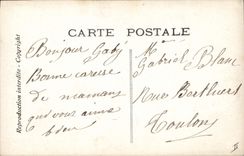 CARTE POSTALE
Reproduction interdite - Copyright
Bonjour Gaby
Bonne caresse
de maman
qui vous aime
bien
M.
Gabriel Blanc
Rue Berthiers
Toulon